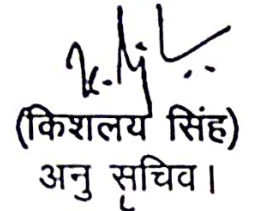 (किशलय सिंह)
अनु सचिव।